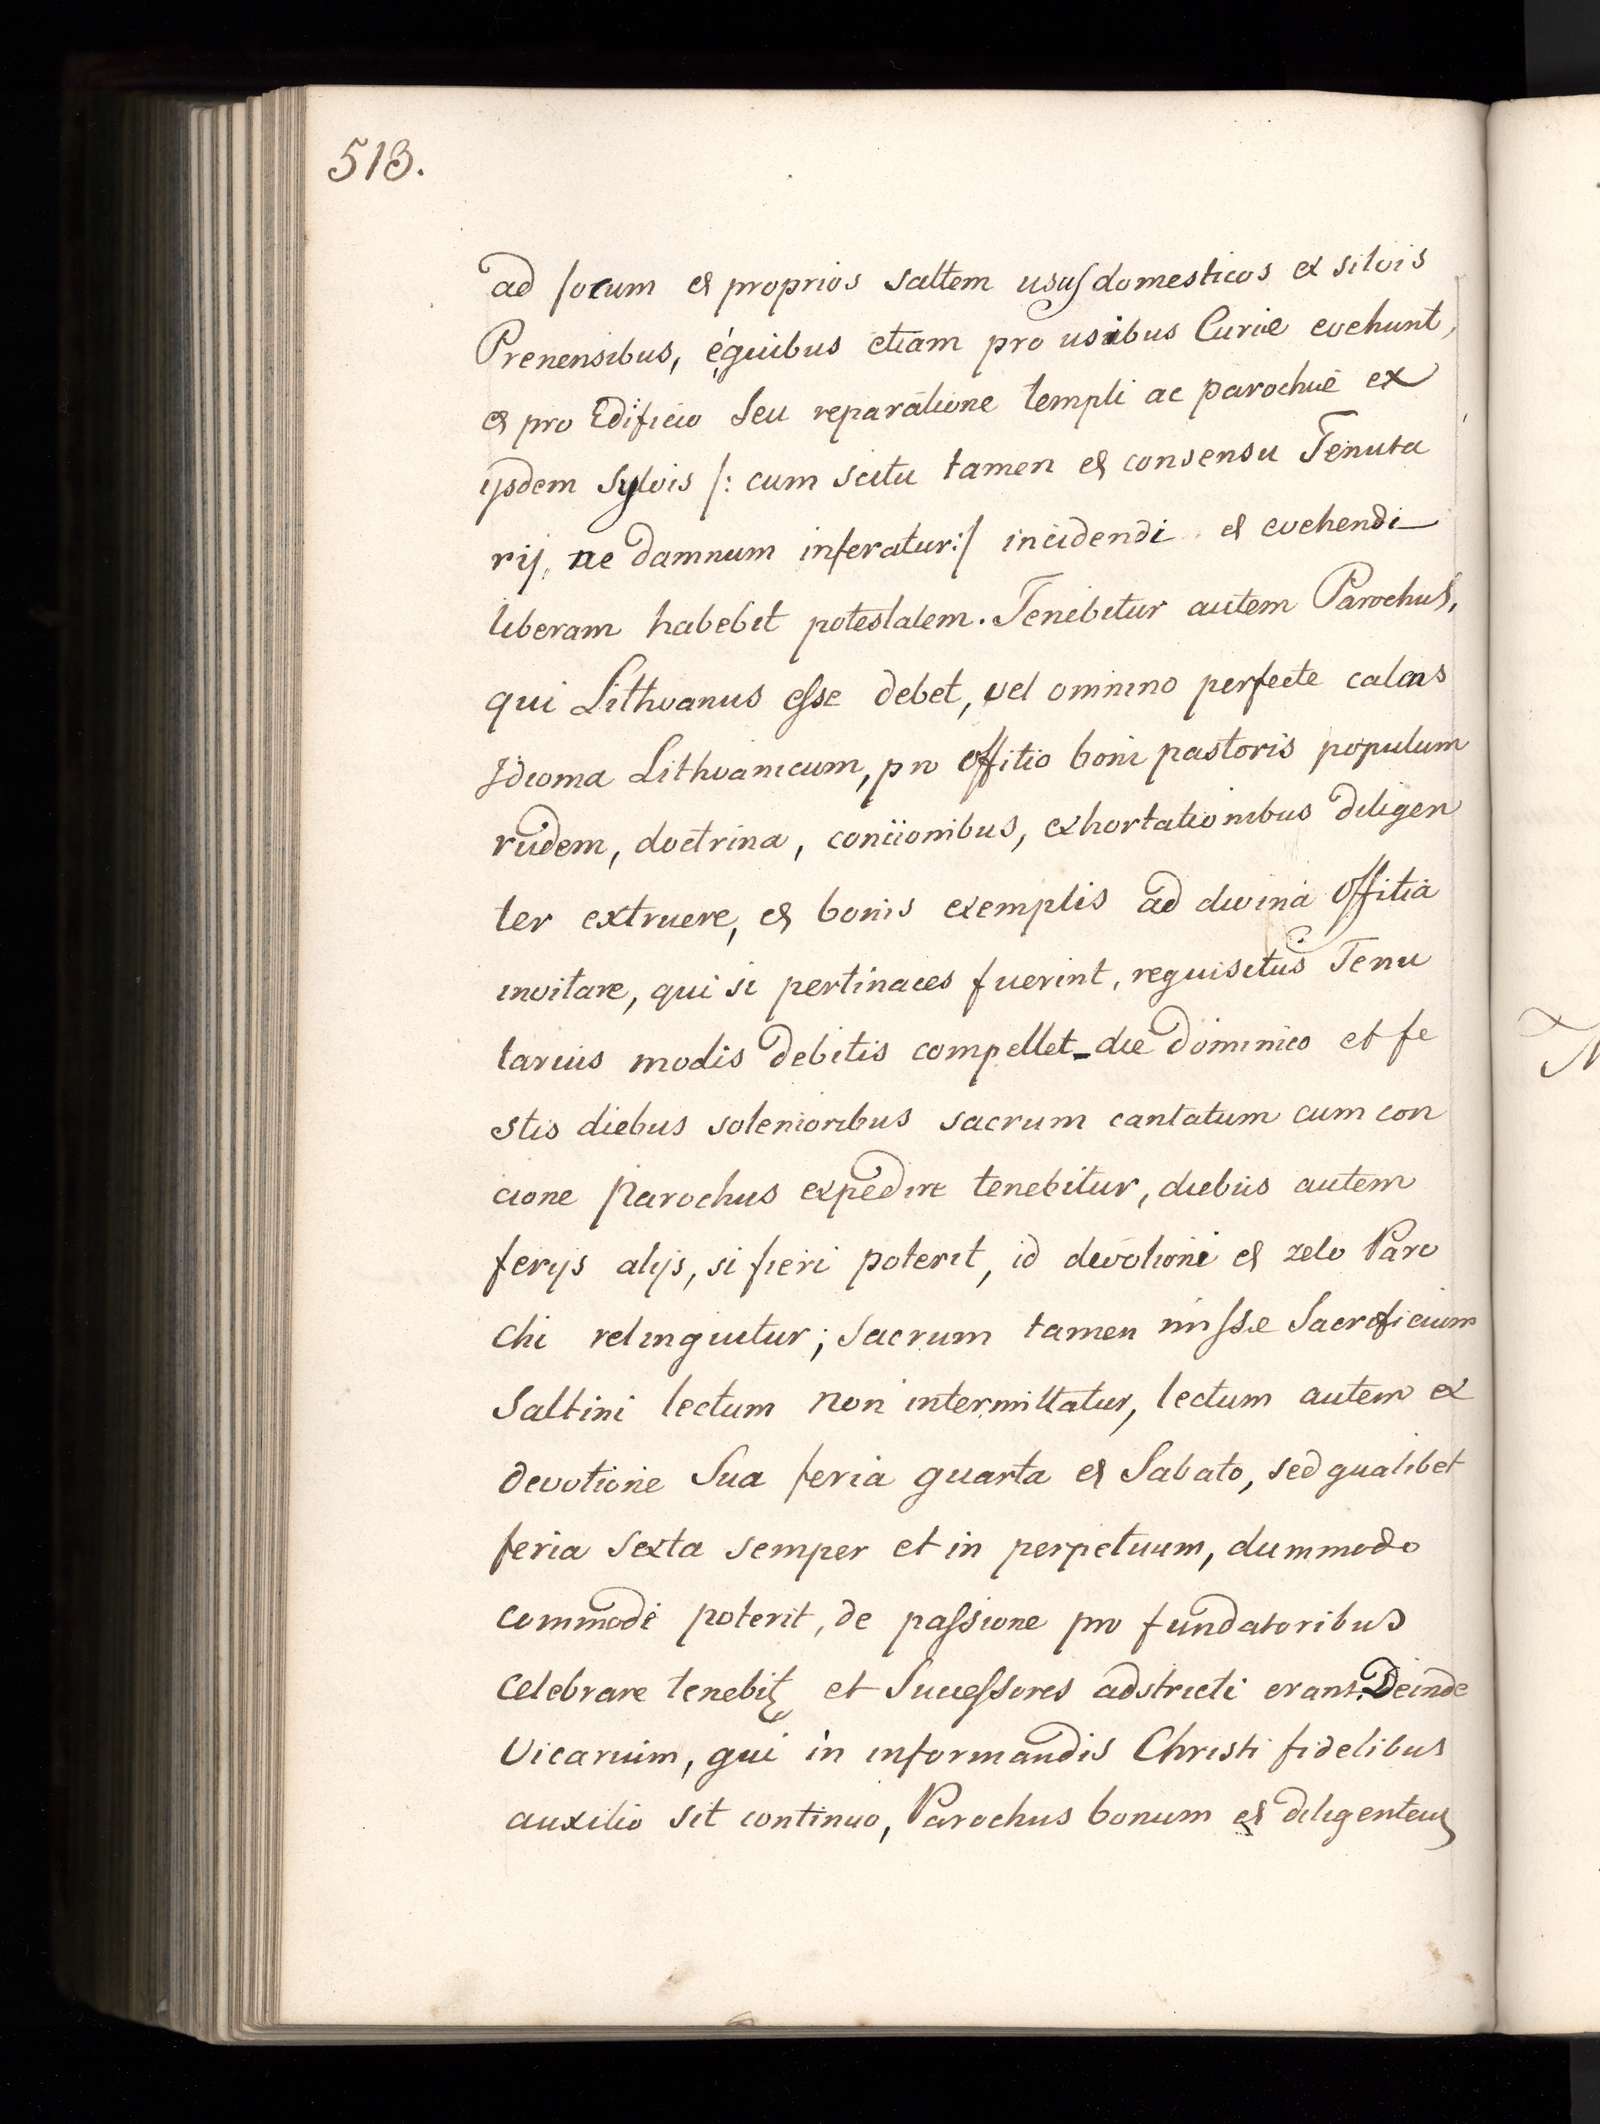 513.
ad focum et proprios saltem usus domesticos ex silvis
Prenensibus, è quibus etiam pro usibus Curiæ evehunt,
et pro Edificio seu reparatione templi ac parochiæ ex
ijsdem sylvis /: cum scitu tamen et consensu Tenuta
rij, ne damnum inferatur:/ incidendi et evehendi
liberam habebit potestatem. Tenebitur autem Parochus,
qui Lithvanus esse debet, vel omnino perfecte calens
Idioma Lithvanicum, pro offitio boni pastoris populum
rudem, doctrina, concionibus, exhortationibus diligen
ter extruere, et bonis exemplis ad divina offitia
invitare, qui si pertinaces fuerint, requisitus Tenu
tarius modis debitis compellet_die dominico et fe
stis diebus solenioribus sacrum cantatum cum con
cione Parochus expedire tenebitur, diebus autem
ferijs alijs, si fieri poterit, id devotioni et zelo Paro
chi relinquitur; Sacrum tamen missæ Sacrificium
Saltini lectum non intermittatur, lectum autem ex
devotione Sua feria quarta et Sabato, sed qualibet
feria sexta semper et in perpetuum, dummodo
commodè poterit, de passione pro fundatoribus
celebrare tenebit et Successores adstricti erant. Deinde
Vicarium, qui in informandis Christi fidelibus
auxilio sit continuo, Parochus bonum et diligentem